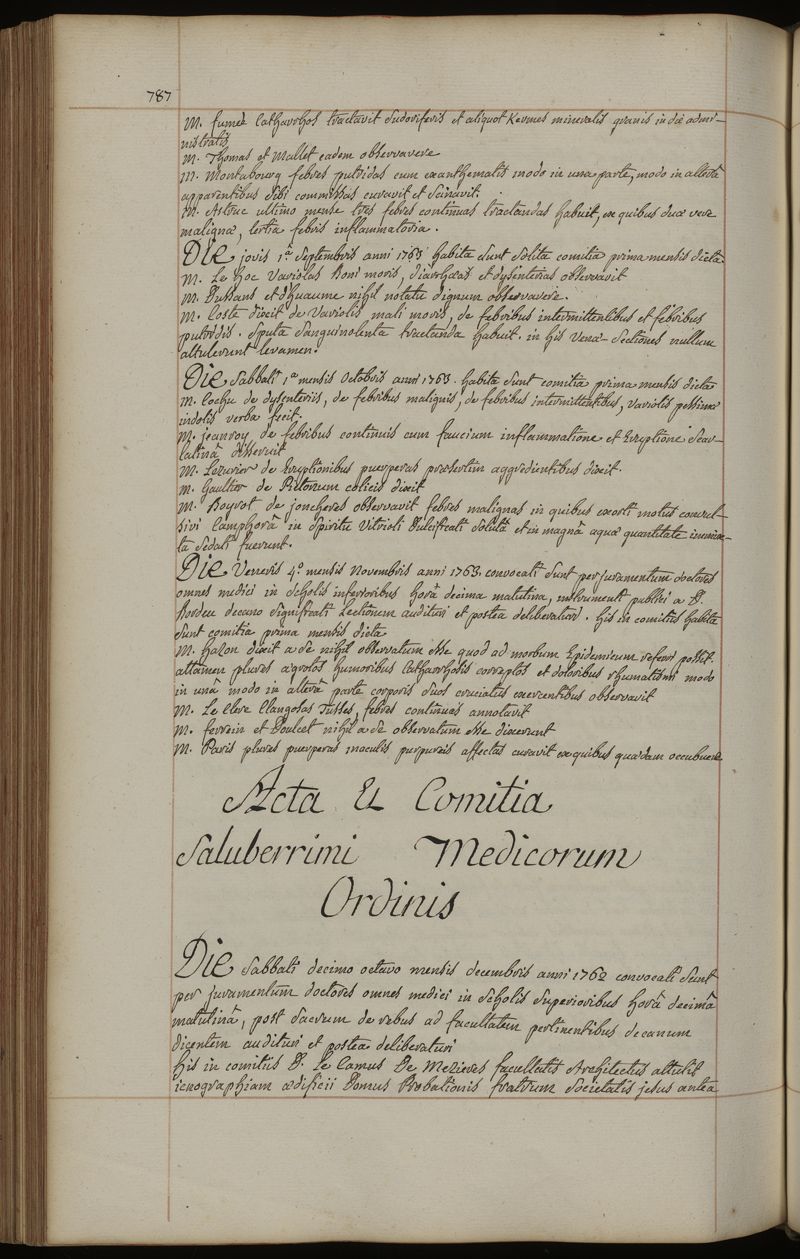 787
M. fumeè Catharrhos tractavit Sudoriferis et aliquot Kermes mineralis granis in die admi-
nistratis
M. Thomas et Mallet eadem observavere
M. Montabourg febres putridas cum exanthematis modo in una parte, modo in alterâ
apparentibus Sibi commissas curavit et Sanavit.
M. Astruc ultimo mense tres febres continuas tractandas habuit, ex quibus duæ vere
maligna, tertia febris inflammatoria.
Die jovis 1ª Septembris anni 1763 habita Sunt Solita comitia prima mensis dicta
M. Le hoc Variolas Boni moris, diarrhæas et dysenterias observavit
M. Dussans et d'huaume nihil notatu dignum observavere.
M. Coste dixit de Variolis mali moris, de febribus intermittentibus et febribus
putridis. Sputa Sanguinolenta tractanda habuit. in his Venæ-Sectiones nullum
attulerunt levamen.
Die Sabbati 1ª mensis Octobris anni 1763. habita Sunt comitia prima mensis dicta
M. Cochu de dysenteriis, de febribus malignis, de febribus intermittentibus, variolis pessimæ
indolis verba fecit.
M. jeanroy de febribus continuis cum faucium inflammatione et Eruptione Scar-
latinâ disseruit
M. Lezurier de Eruptionibus puerperas præsertim aggredientibus dixit.
M. Gaultier de Pictorum colicis dixit
M. Boyrot de joncheres observavit febres malignas in quibus exorti motus convul-
sivi Camphorâ in Spiritu Vitrioli Dulcificati Solutâ et in magnâ aquæ quantitate immix-
ta Sedati fuerunt.
Die Veneris 4º mensis Novembris anni 1763. convocati Sunt per juramentum doctores
omnes medici in Scholis inferioribus horâ decima matutina, instrumenti publici a D.
Bordeu decano Significati Lectionem audituri et postea deliberaturi. His in comitiis habita
Sunt comitia prima mensis dicta
M. hazon dixit a Se nihil observatum esse quod ad morbum Epidemicum referri possit.
attamen plures ægrotos humoribus Catharrhosis correptos et doloribus rhumatismi modo
in unâ modo in alterâ parte corporis Suos cruciatus exercentibus observavit
M. Le Clerc Clangosas Tusses, febres continuas annotavit
M. ferrein et Doulcet nihil a Se observatum esse dixerunt
M. Paris plures puerperas maculis purpureis affectas curavit ex quibus quædam occubuere
Acta Et Comitia
Saluberrimi Medicorum
Ordinis
Die Sabbati decimo octavo mensis decembris anni 1762 convocati Sunt
per juramentum doctores omnes medici in Scholis Superioribus horâ decimâ
matutinâ, post Sacrum de rebus ad facultatem pertinentibus decanum
dicentem audituri et postea deliberaturi
His in comitiis D. Le Camus De Mezieres facultatis Architectus attulit
icnographiam ædificii Domus Probationis fratrum Societatis jesus antea